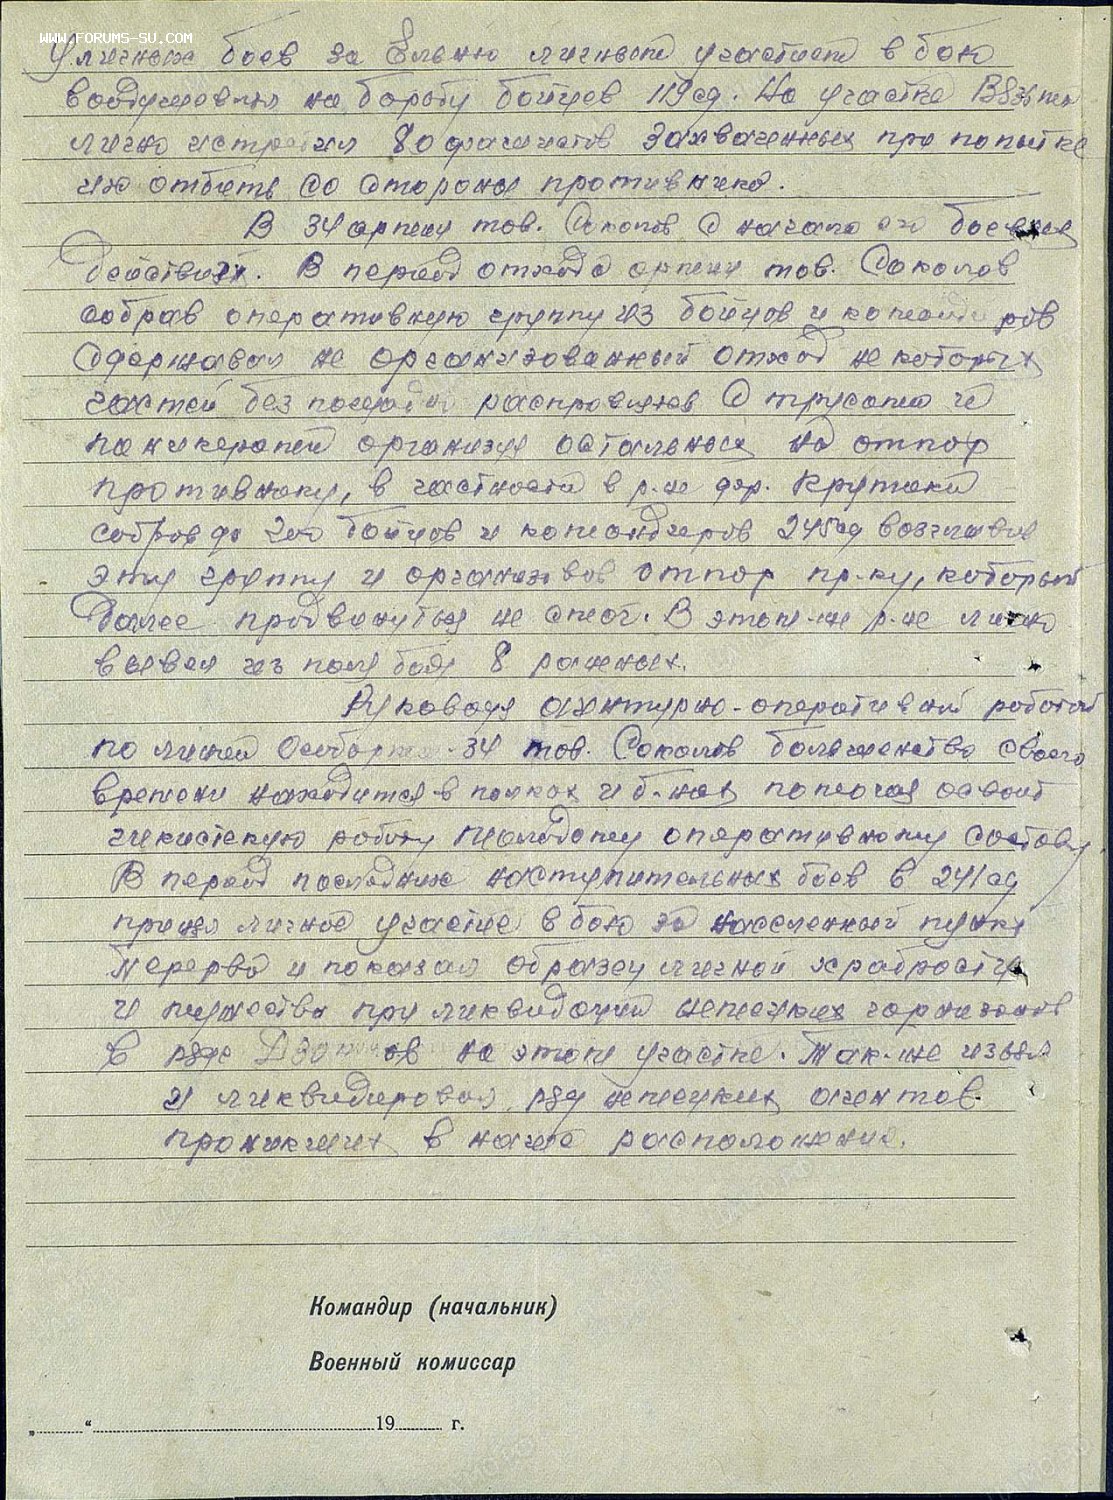 WWW.FORUMS-SU.COM
Уличных боев за Ельню личным участием в бою
воодушевлял на борьбу бойцев 119 сд. На участке
лично истребил 80 фашистов захваченных при попытке
их отбить со стороны противника.
В 34 армии тов. Соколов с начала её боевых
действий. В период отхода армии тов. Соколов
собрав оперативную группу из бойцов и командиров
сдерживал не организованный отход некоторых
частей без пощады расправляяв с трусами и
паникерами организуя остальных на отпор
противнику, в частности в р-не дер. Крутики
собрав до 200 бойцов и командиров 245 сд возглавив
эту группу и организовов отпор пр-ку, который
далее продвинуться не смог. В этом-же р-не лично
вывел из поля боя 8 раненых.
Руководя агентурно-оперативной работой
по линии 34 тов. Соколов большенство своего
времени находится в полках и б-нах помогая освоить
чекистскую работу молодому оперативному составу.
В период последних наступительных боев в 241 сд
принял личное участие в бою за населенный пункт
и показал образец личной храбрости
и мужества при ликвидации немецких гарнизонов
в ряде Дзотов на этом участке. Так-же изъял
и ликвидировал ряд немецких агентов.
проникших в наше расположения.
Командир (начальник)
Военный комиссар
„ “ 19 г.